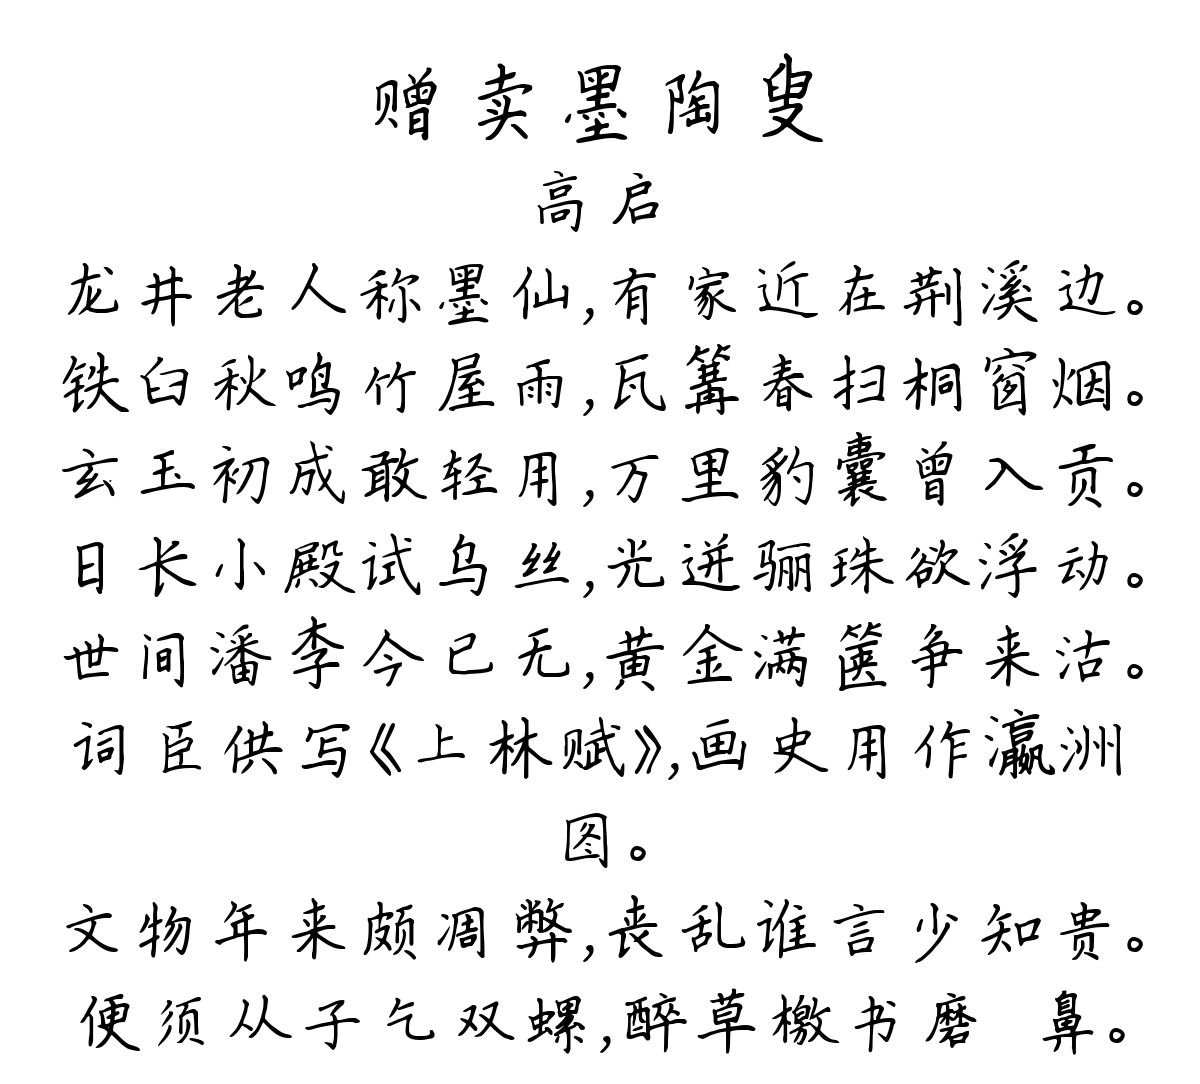 赠卖墨陶叟
高启
龙井老人称墨仙,有家近在荆溪边。
铁臼秋鸣竹屋雨,瓦篝春扫桐窗烟。
玄玉初成敢轻用,万里豹囊曾入贡。
日长小殿试乌丝,光迸骊珠欲浮动。
世间潘李今已无,黄金满箧争来沽。
词臣供写《上林赋》,画史用作瀛洲
图。
文物年来颇凋弊,丧乱谁言少知贵。
便须从子乞双螺,醉草檄书磨 鼻。